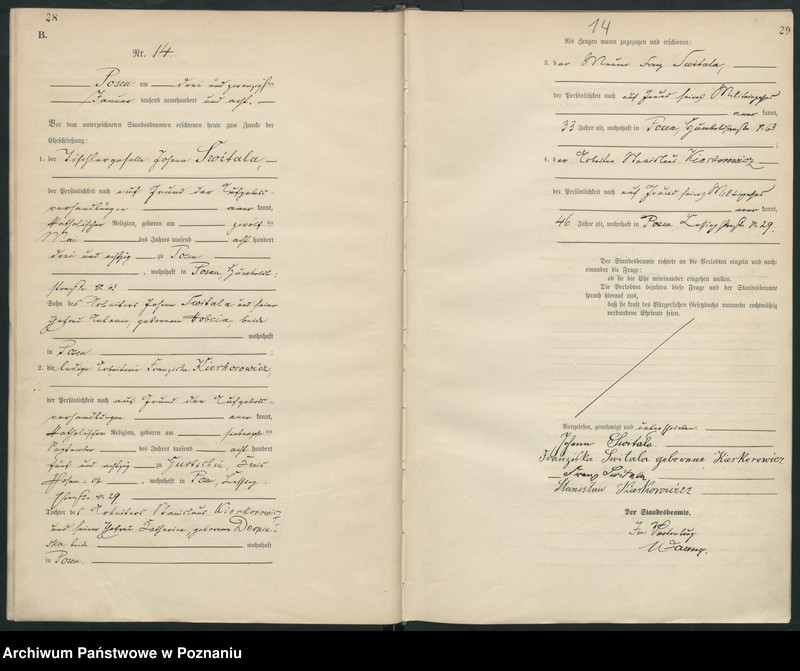 28
B.
Nr. 14.
Posen am drei und zwanzigsten
Januar tausend neunhundert und acht.
Vor dem unterzeichneten Standesbeamten erschienen heute zum Zwecke der
Eheschließung:
1. der Tischlergeselle Johann Switala,
der Persönlichkeit nach auf Grund der Aufgebots-
verhandlungen aner kannt,
katholischer Religion, geboren am zwölften
Mai des Jahres tausend acht hundert
drei und achtzig zu Posen
, wohnhaft in Posen, Humboldt-
straße N. 63
Sohn des Arbeiters Johann Switala und seiner
Ehefrau Antonie, geborenen beide
wohnhaft
in Posen ;
2. die ledige Arbeiterin Franziska Kierkorowicz,
der Persönlichkeit nach auf Grund der Aufgebots-
verhandlungen aner kannt,
katholischer Religion, geboren am
September des Jahres tausend acht hundert
fünf und achtzig zu Kreis
Posen-Ost, wohnhaft in Posen,
straße N. 29
Tochter des Arbeiters Stanislaus Kierkorowicz
und seiner Ehefrau Katharina, geborenen
beide wohnhaft
in Posen.
14
29
Als Zeugen waren zugezogen und erschienen:
3. der Maurer Franz Switala,
der Persönlichkeit nach auf Grund seines Militärpasses
aner kannt,
33 Jahre alt, wohnhaft in Posen, Humboldtstraße N. 63
;
4. der Arbeiter Stanislaus Kierkorowicz
der Persönlichkeit nach auf Grund seines Militärpasses
aner kannt,
46 Jahre alt, wohnhaft in Posen N. 29.
Der Standesbeamte richtete an die Verlobten einzeln und nach-
einander die Frage:
ob sie die Ehe miteinander eingehen wollen.
Die Verlobten bejahten diese Frage und der Standesbeamte
sprach hierauf aus,
daß sie kraft des Bürgerlichen Gesetzbuchs nunmehr rechtmäßig
verbundene Eheleute seien.
Vorgelesen, genehmigt und unterschrieben
Johann Switala
Franziska Switala geborene Kierkorowicz
Franz Switala
Stanislaw Kierkorowicz
Der Standesbeamte.
In Vertretung
Archiwum Państwowe w Poznaniu